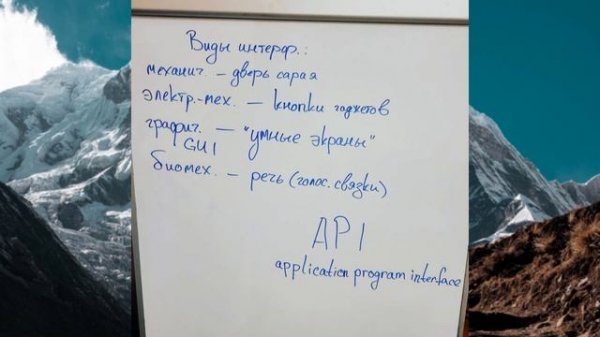 Виды интерф.:
механич. – дверь сарая
электр.-мех. – кнопки гаджетов
графич. – "умные экраны"
GUI
биомех. – речь (голос. связки)
API
application program interface